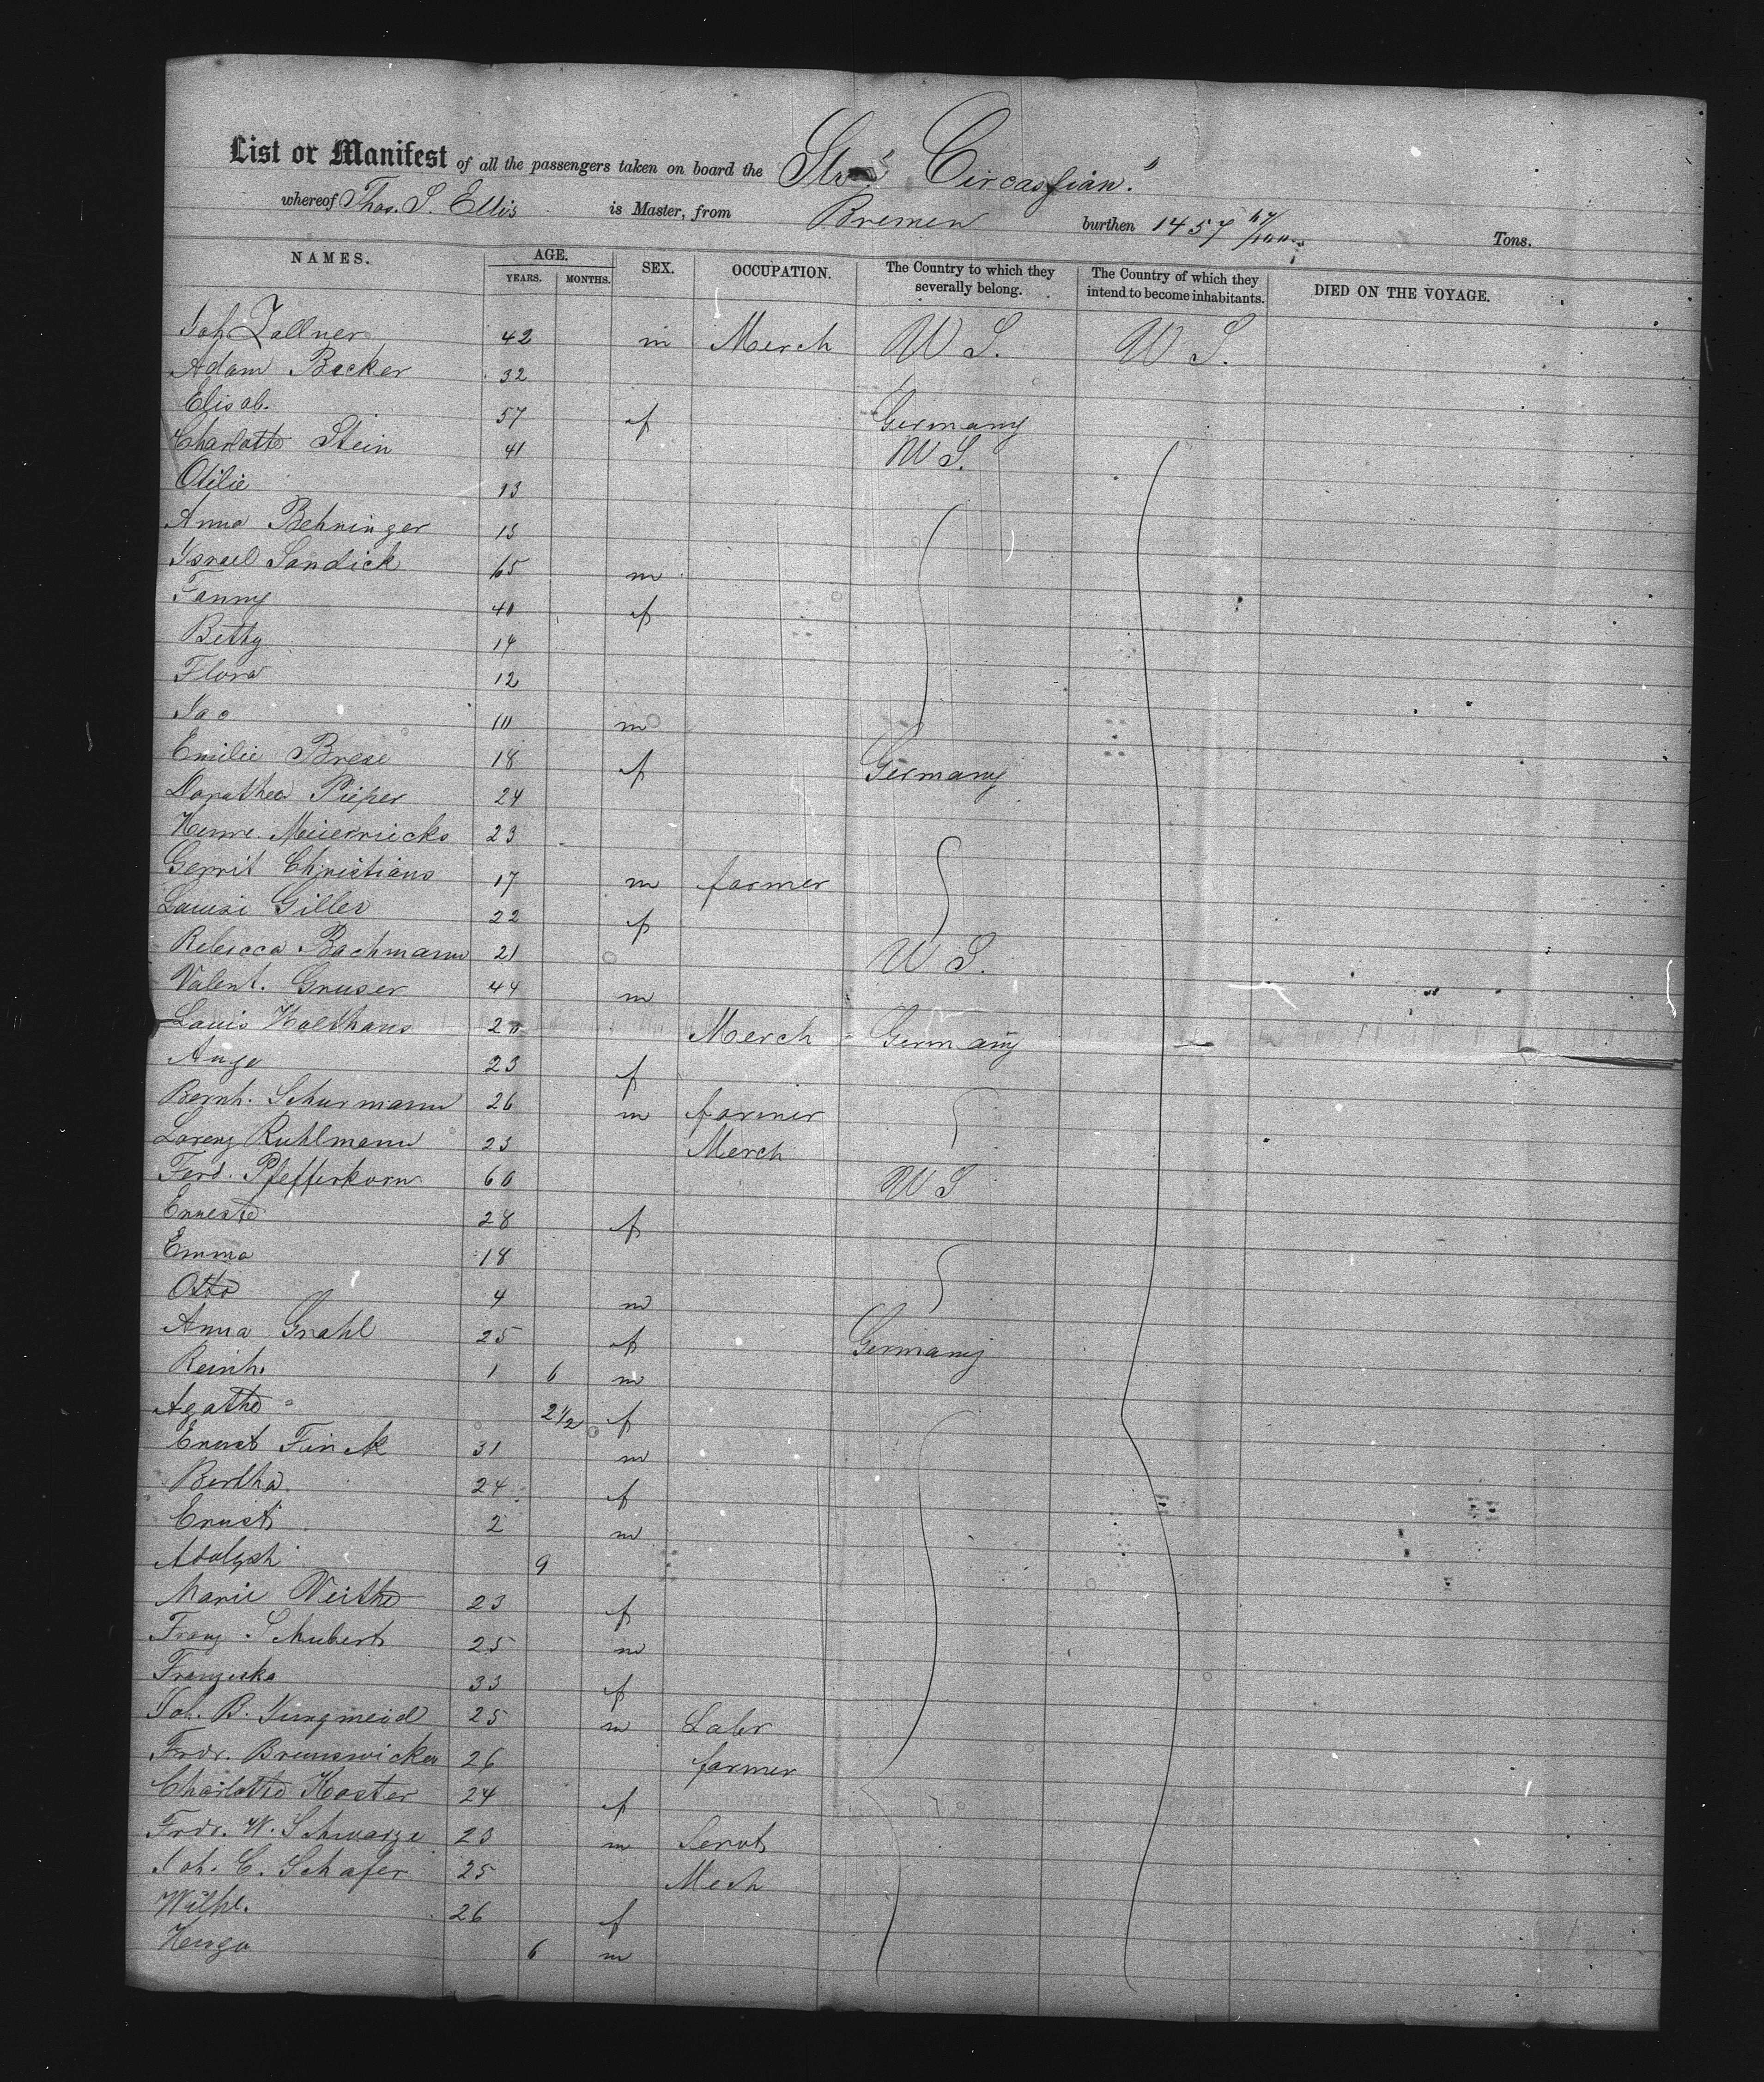 List or Manifest of all the passengers taken on board the Str "Circassian"
whereof Thos. S. Ellis is Master, from Bremen burthen 1457 67/100 Tons.
NAMES. AGE. YEARS. MONTHS. SEX. OCCUPATION. The Country to which they severally belong. The Country of which they intend to become inhabitants. DIED ON THE VOYAGE.
Joh Zollner 42 m Merch U S. U S.
Adam Becker 32
Elisab. 57 f Germany
Charlotte Stein 41 U S.
Otilie 13
Anna Behninger 13
Israel Sandick 65 m
Fanny 40 f
Bethy 14
Flora 12
Jac 10 m
Emilie Brese 18 f Germany
Dorathea Pieper 24
Henre. Meiernicks 23
Gerrit Christians 17 m farmer
Louise Giller 22 f
Rebecca Bachmann 21 U S.
Valent. Gruser 44 m
Louis Holthaus 20 Merch Germany
Auge 23 f
Bernh. Schurmann 26 m farmer
Lorenz Ruhlmann 23 Merch
Ferd. Pfefferkorn 60 U S
Erneste 28 f
Emma 18
Otto 4 m
Anna Grahl 25 f Germany
Reinh. 1 6 m
Agathe " 2 1/2 f
Ernst Finck 31 m
Bertha 24 f
Ernst 2 m
Adolph 9
Marie Veithe 23 f
Franz Schubert 25 m
Franziska 33 f
Joh. B. Jungmeid 25 m Labr
Frdr. Brunswicker 26 farmer
Charlotte Koster 24 f
Frdr. W. Schwarze 23 m Servt
Joh. C. Schafer 25 Mech
Wilhe. 26 f
Hugo 6 m